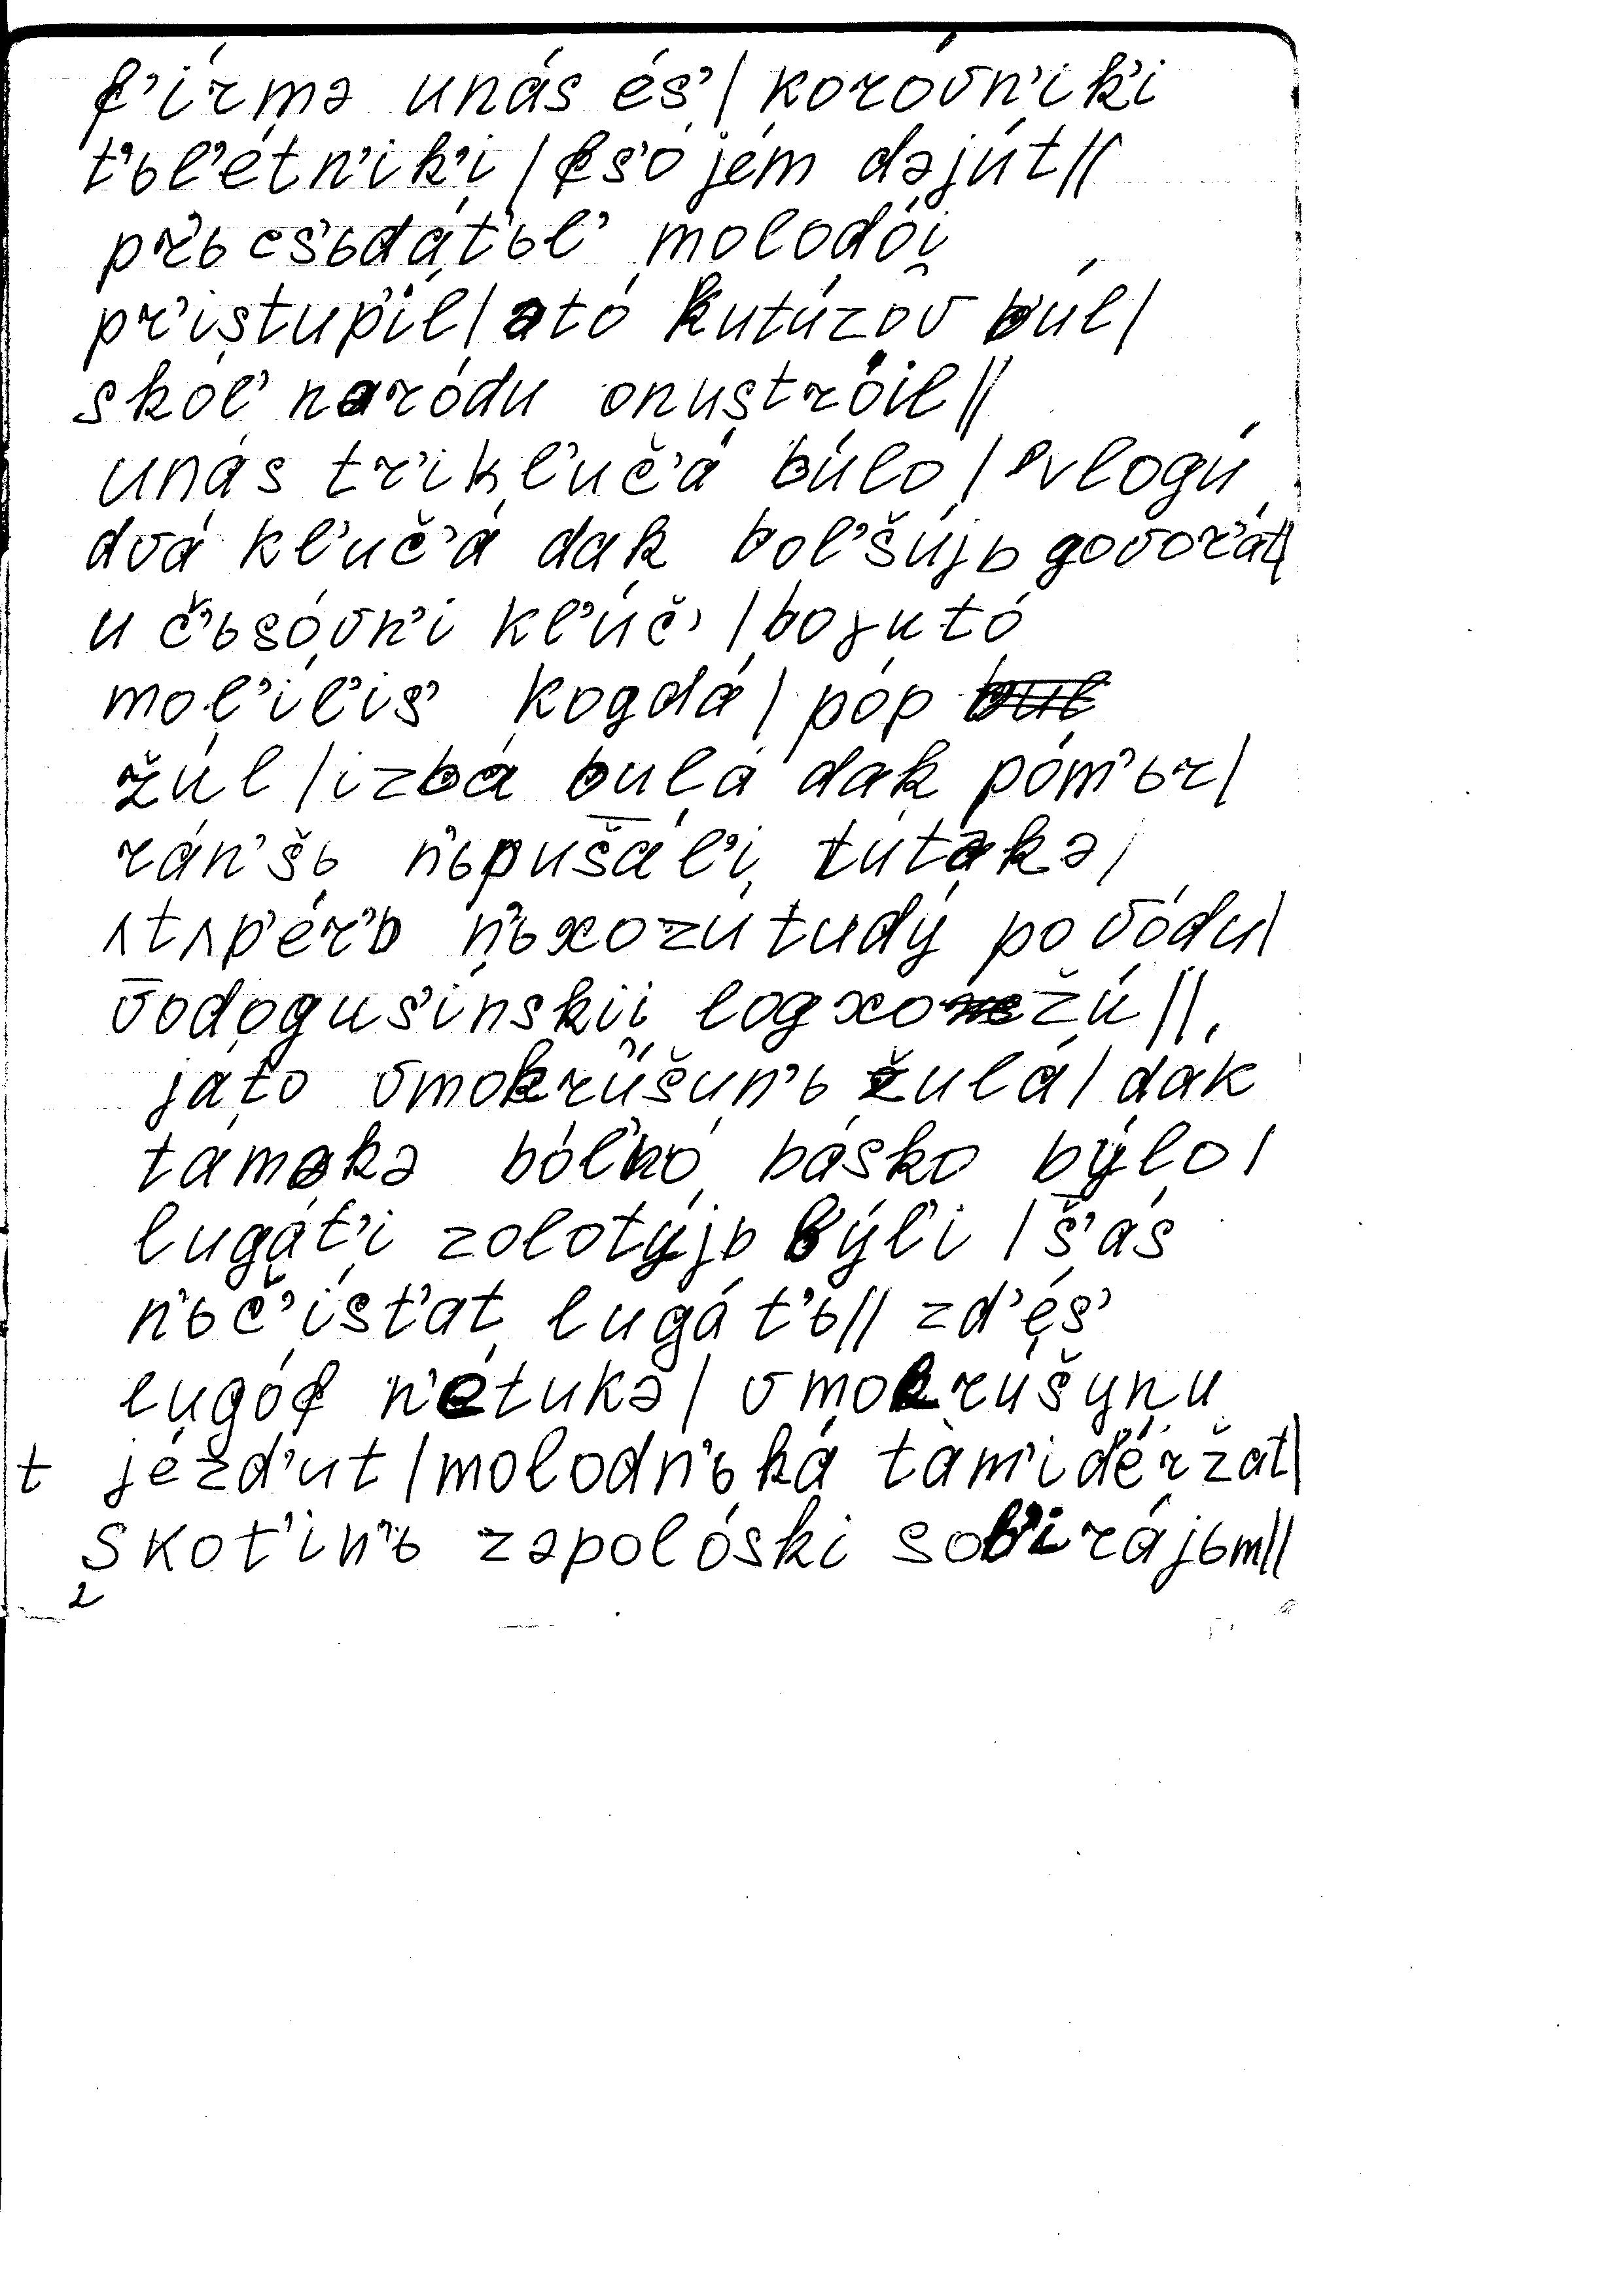 f’írmə unás és’ | koróvn’ik’i
t’ьl’étn’ik’i | fs’ó jém dəjút ||
pr’ьc’s’ьdát’ьl’ molodói̯
pr’istup’íl | ató kutúzov búl |
skól’ naródu onustróil ||
unás tr’ikl’uč’á búlo | vlogú
dvá kl’uč’á dak bol’šújь govor’át |
u č’ьsóvn’i kl’úč’ | boγutó
mol’íl’is’ kogdá | póp
žúl | izbá bulá dak póm’ьr |
rán’šь n’ьpuš̄ál’i tútəkə |
ʌtʌp’ér’ь n’ьxozú tudý po vódu |
v̄odogus’ínskii log xožú ||
játo vmokrúšun’ь žulá | dák
táməkə ból’no básko býlo |
lugát’i zolotýjь býl’i | š̄’ás
n’ьč’ís’t’at lugát’ь || zd’és’
lugóf n’étukə | vmokrúšynu
t jézd’ut | molodn’ьká tàm’id’éržat |
skot’ín’ь zəpolóski sob’irájьm ||
2